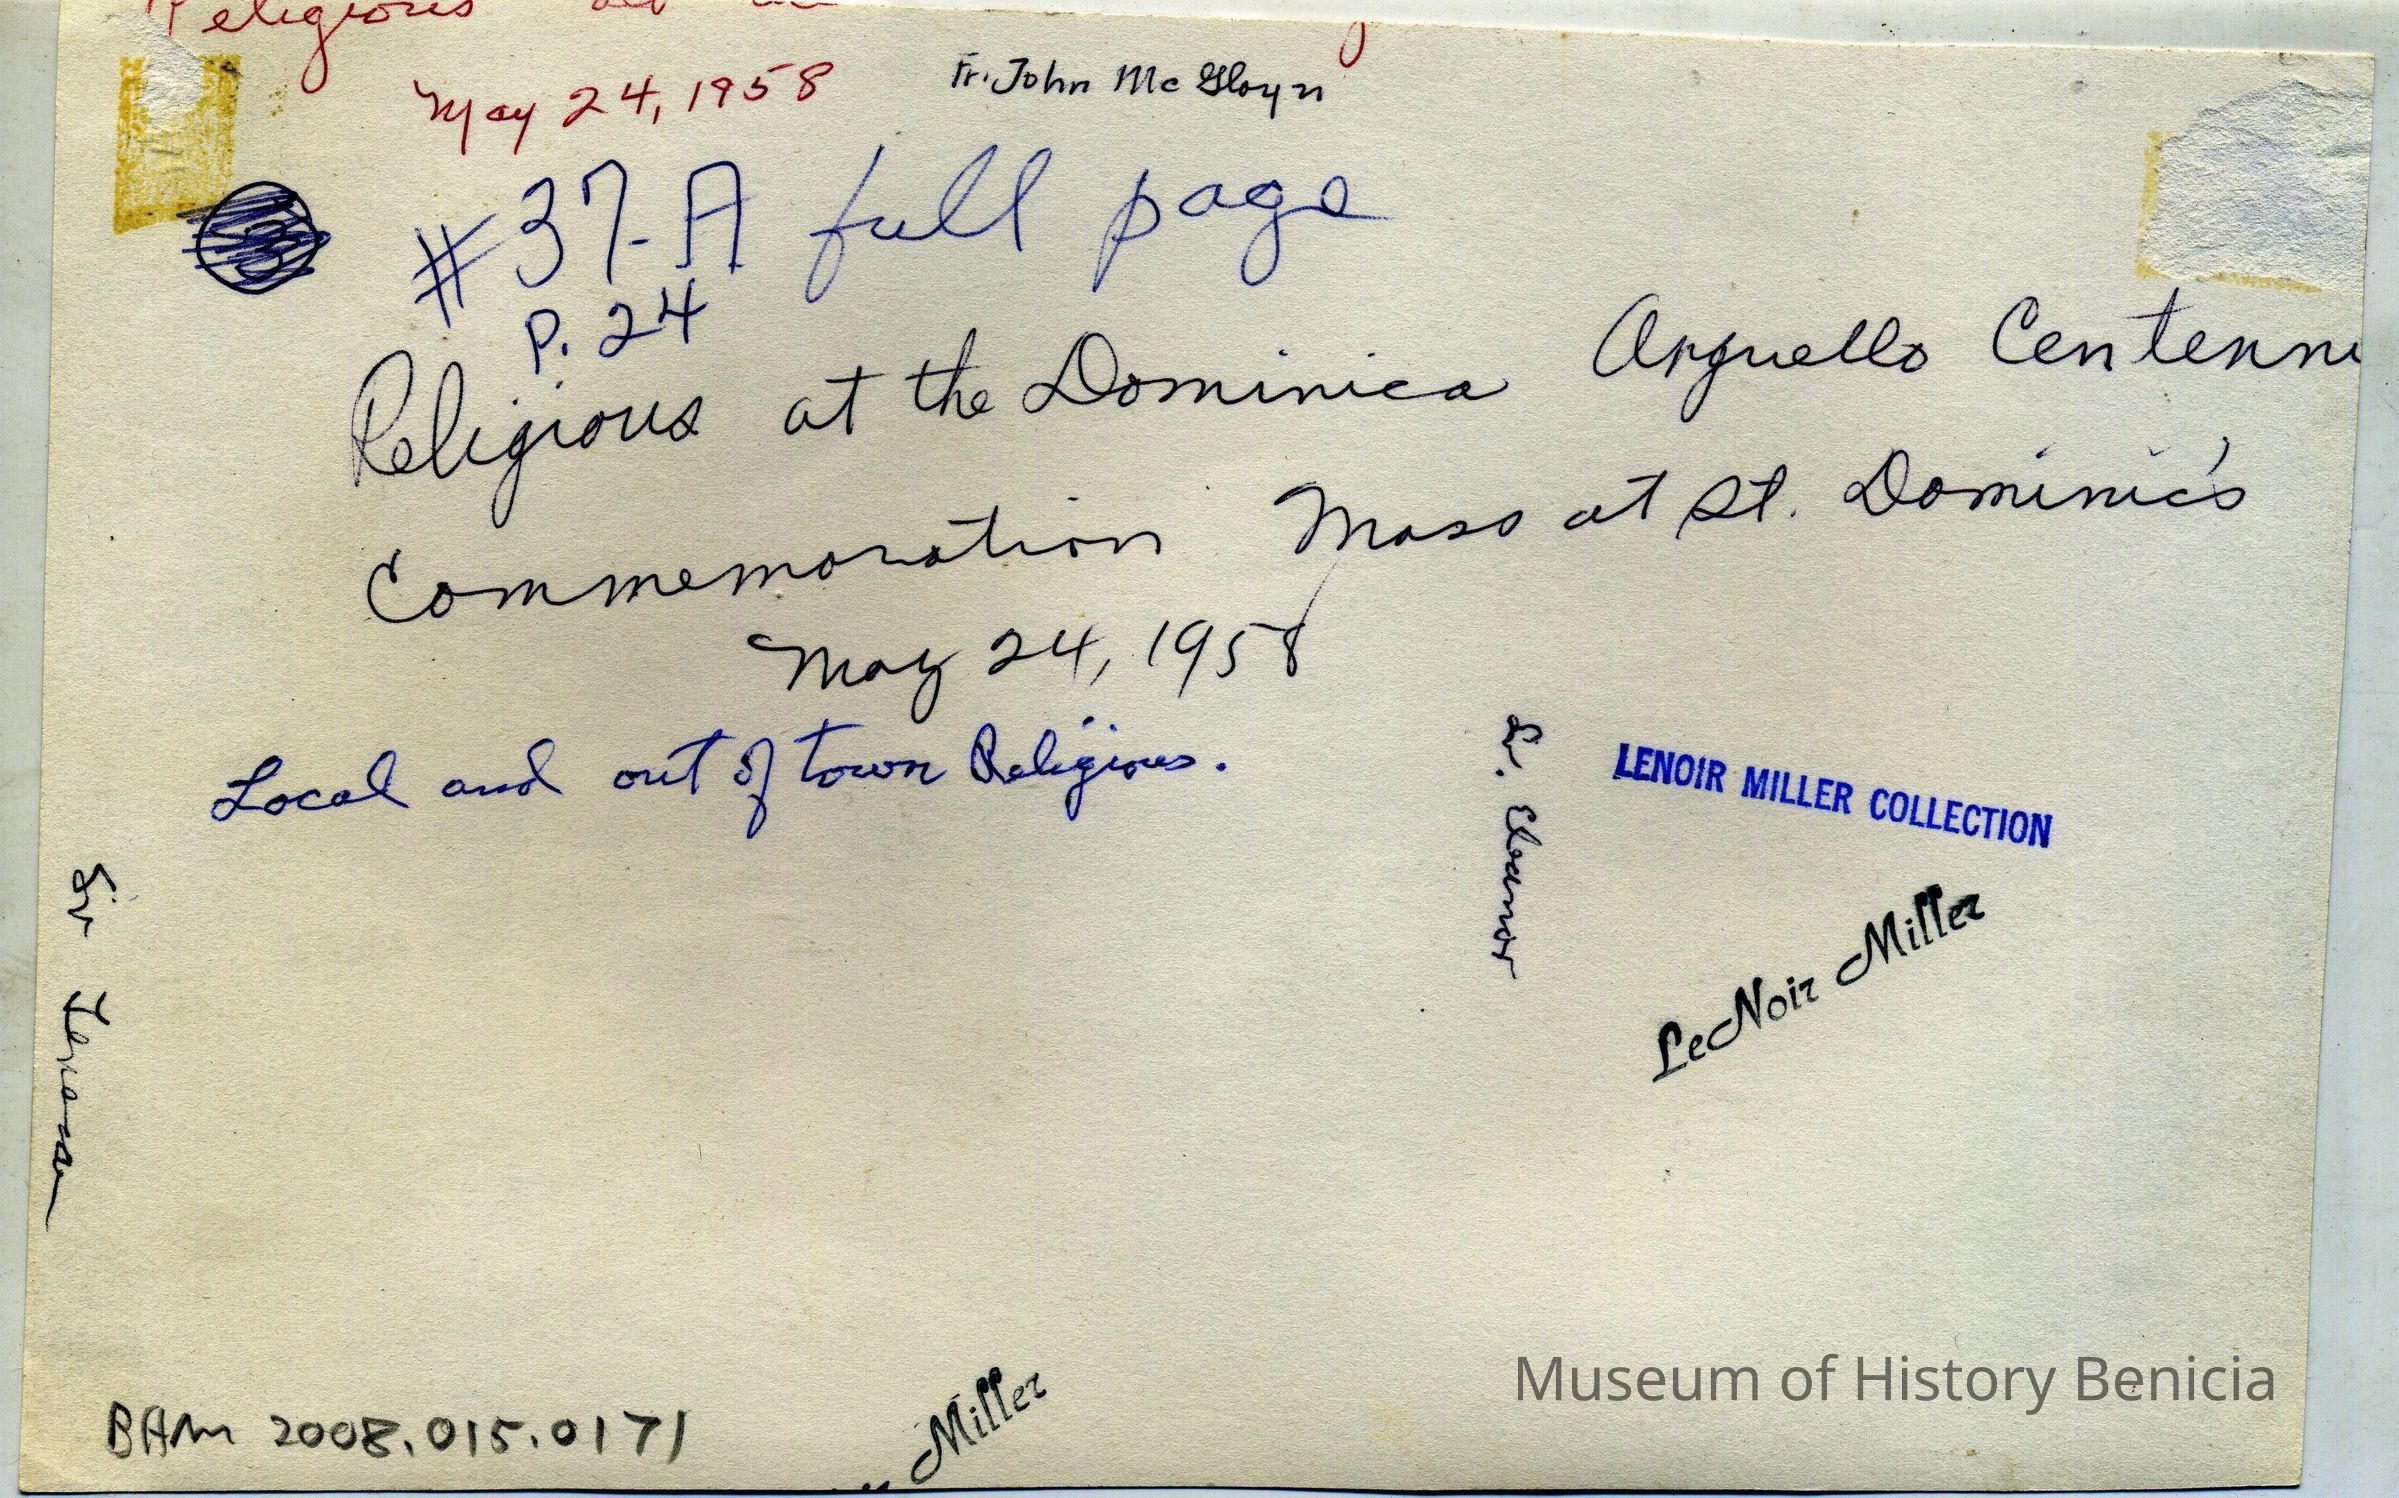 Religious
May 24, 1958
Fr. John McGloyn
3
#37-A full page
P. 24
Religious at the Dominica Arguello Centenni
Commemoration Mass at St. Dominic's
May 24, 1958
Local and out of town Religious.
Sr. Eleanor
LENOIR MILLER COLLECTION
LeNoir Miller
Sr
Miller
BAM 2008.015.0171
Museum of History Benicia